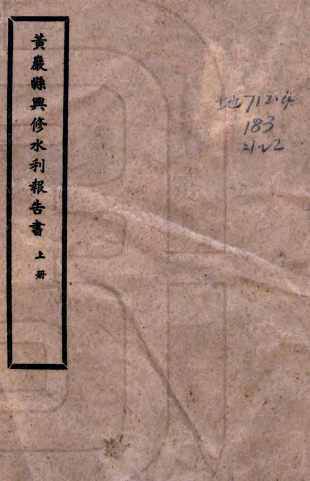 黃巖縣興修水利報告書 上册
地712.4
183
21.22